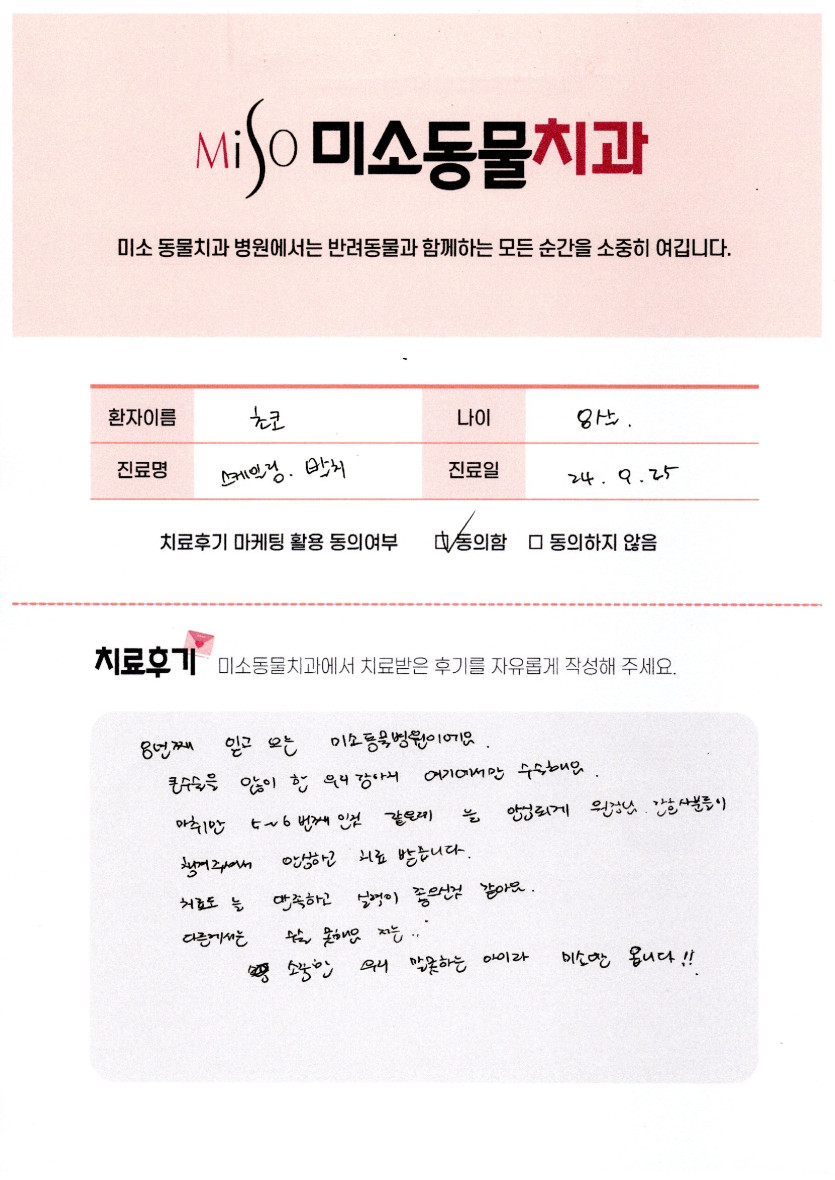 MiSO 미소동물치과
미소 동물치과 병원에서는 반려동물과 함께하는 모든 순간을 소중히 여깁니다.
환자이름 초코 나이 8살.
진료명 스케일링. 발치 진료일 24. 9. 25
치료후기 마케팅 활용 동의여부 동의함 동의하지 않음
치료후기 미소동물치과에서 치료받은 후기를 자유롭게 작성해 주세요.
8년째 믿고 오는 미소동물병원이에요.
큰수술을 많이 한 우리 강아지 여기에서만 수술해요.
마취만 5~6번째 인것 같은데 늘 안정되게 원장님. 간호사분들이
챙겨주셔서 안심하고 치료 받습니다.
치료도 늘 만족하고 실력이 좋으신것 같아요.
다른데서는 수술 못해요 저는..
소중한 우리 말못하는 아이라 미소만 옵니다!!